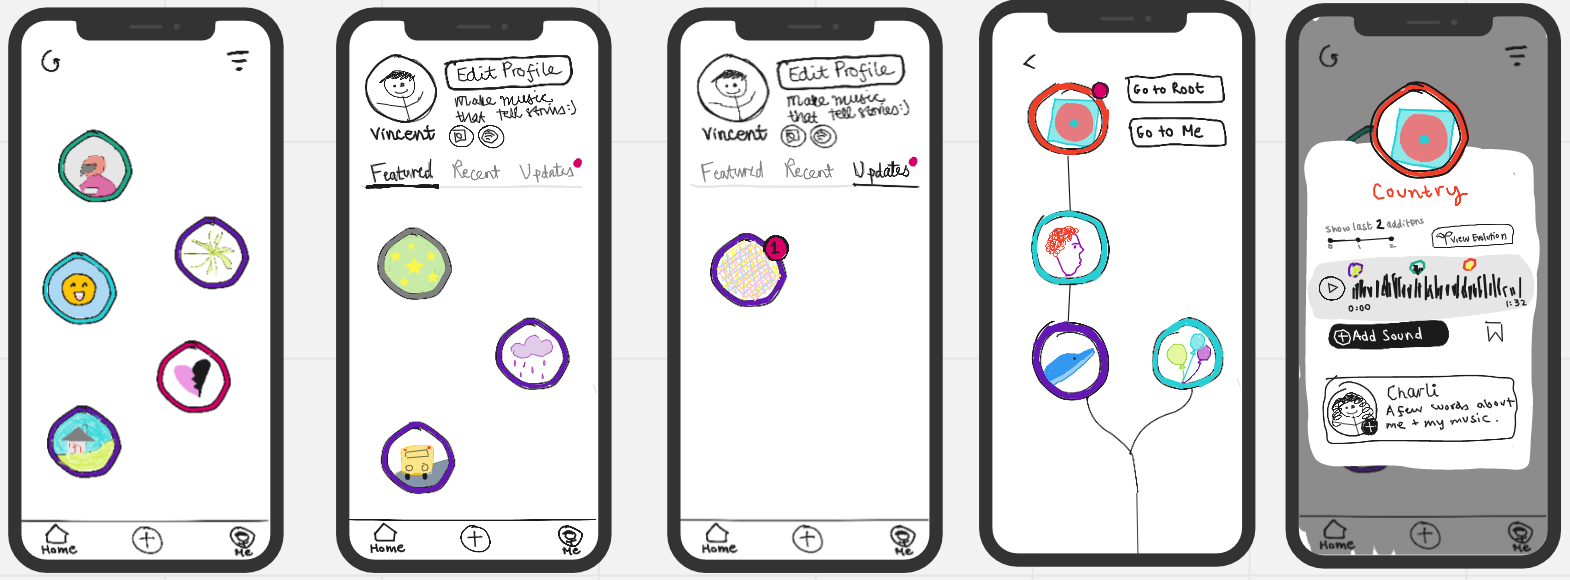 Home
Me
Edit Profile
make music
that tell stories:)
Vincent
Featured
Recent
Updates
Home
Me
Edit Profile
make music
that tell stories:)
Vincent
Featured
Recent
Updates
1
Home
Me
<
Go to Root
Go to Me
Country
Show last 2 additions
0 1 2
View Evolution
0:00
1:32
Add Sound
Charli
A few words about
me + my music.
Home
Me